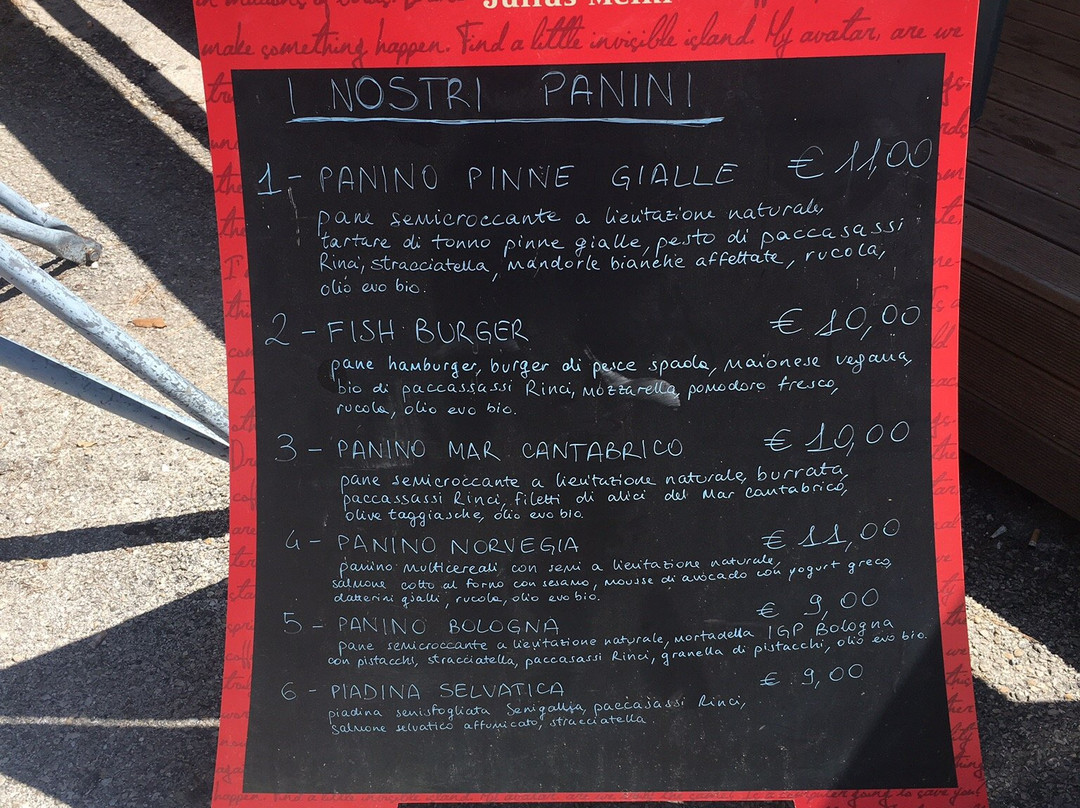 Julius Meinl
make something happen. Find a little invisible island. My avatar, are we
I NOSTRI PANINI
1 - PANINO PINNE GIALLE € 11,00
pane semicroccante a lievitazione naturale,
tartare di tonno pinne gialle, pesto di paccasassi
Rinci, stracciatella, mandorle bianche affettate, rucola,
olio evo bio.
2 - FISH BURGER € 10,00
pane hamburger, burger di pesce spada, maionese vegana,
bio di paccassassi Rinci, mozzarella, pomodoro fresco,
rucola, olio evo bio.
3 - PANINO MAR CANTABRICO € 10,00
pane semicroccante a lievitazione naturale, burrata,
paccassassi Rinci, filetti di alici del Mar Cantabrico,
olive taggiasche, olio evo bio.
4 - PANINO NORVEGIA € 11,00
panino multicereali con semi a lievitazione naturale,
salmone cotto al forno con sesamo, mousse di avocado con yogurt greco,
datterini gialli, rucola, olio evo bio.
5 - PANINO BOLOGNA € 9,00
pane semicroccante a lievitazione naturale, mortadella IGP Bologna
con pistacchi, stracciatella, paccasassi Rinci, granella di pistacchi, olio evo bio.
6 - PIADINA SELVATICA € 9,00
piadina semisfogliata Senigallia, paccasassi Rinci,
salmone selvatico affumicato, stracciatella.